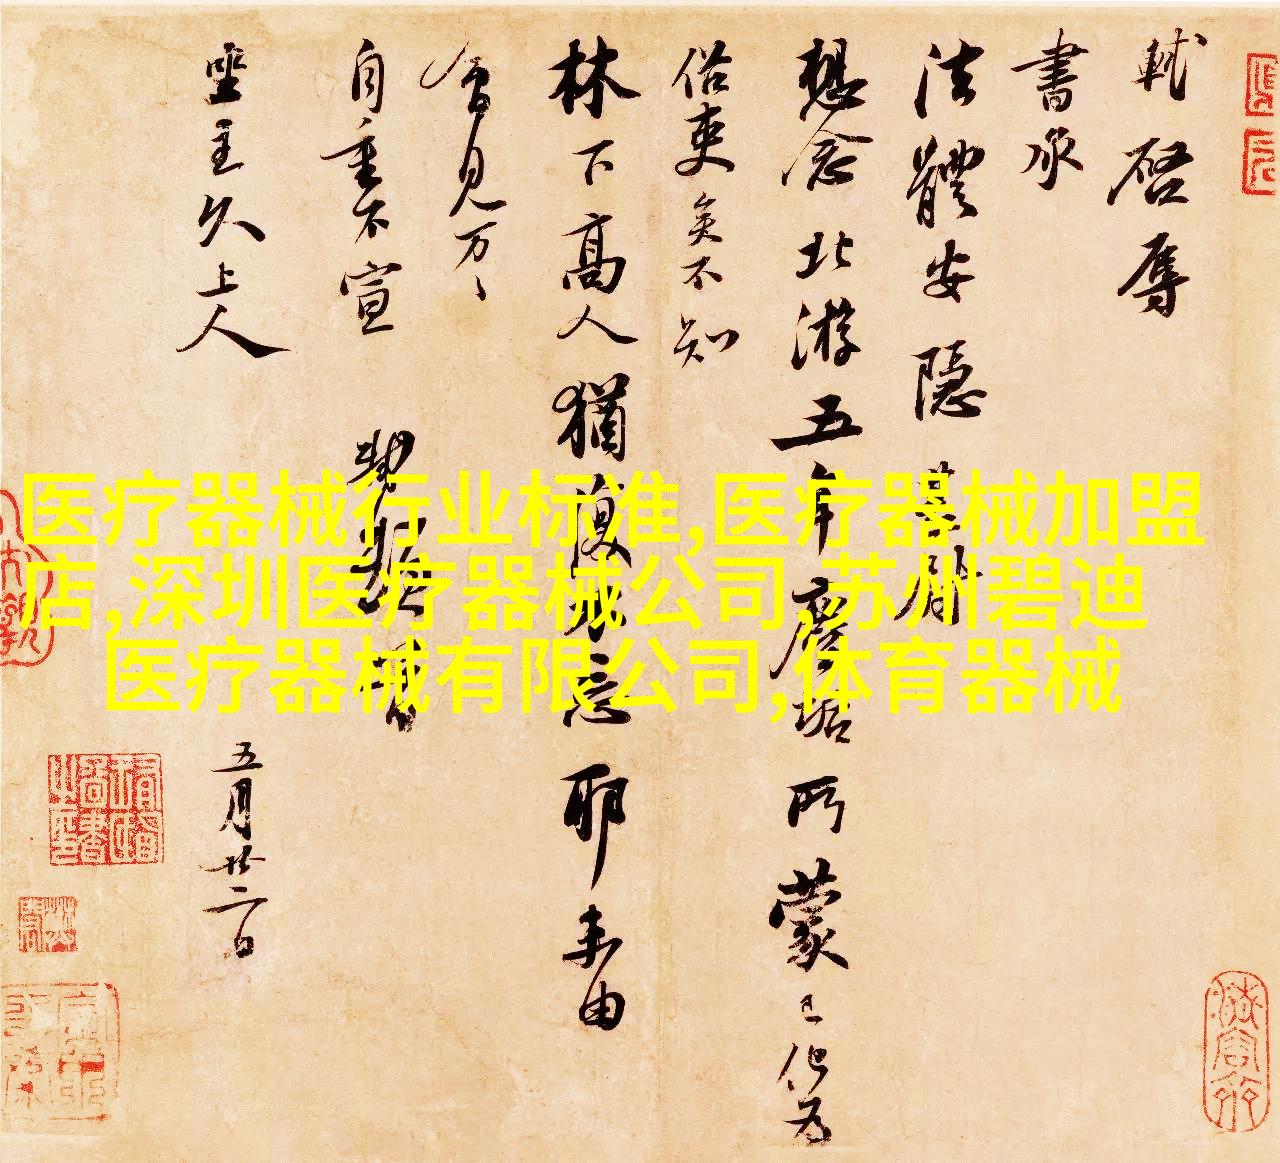 軾啓辱
書承
法體安隱甚慰
想念北游五年塵垢所蒙已化為
俗吏矣不知
林下高人猶復不忘耶未由
會見万〻
自重不宣 軾頓首
坐主久上人
五月廿二日
医疗器械行业标准,医疗器械加盟
店,深圳医疗器械公司,苏州碧迪
医疗器械有限公司,体育器械